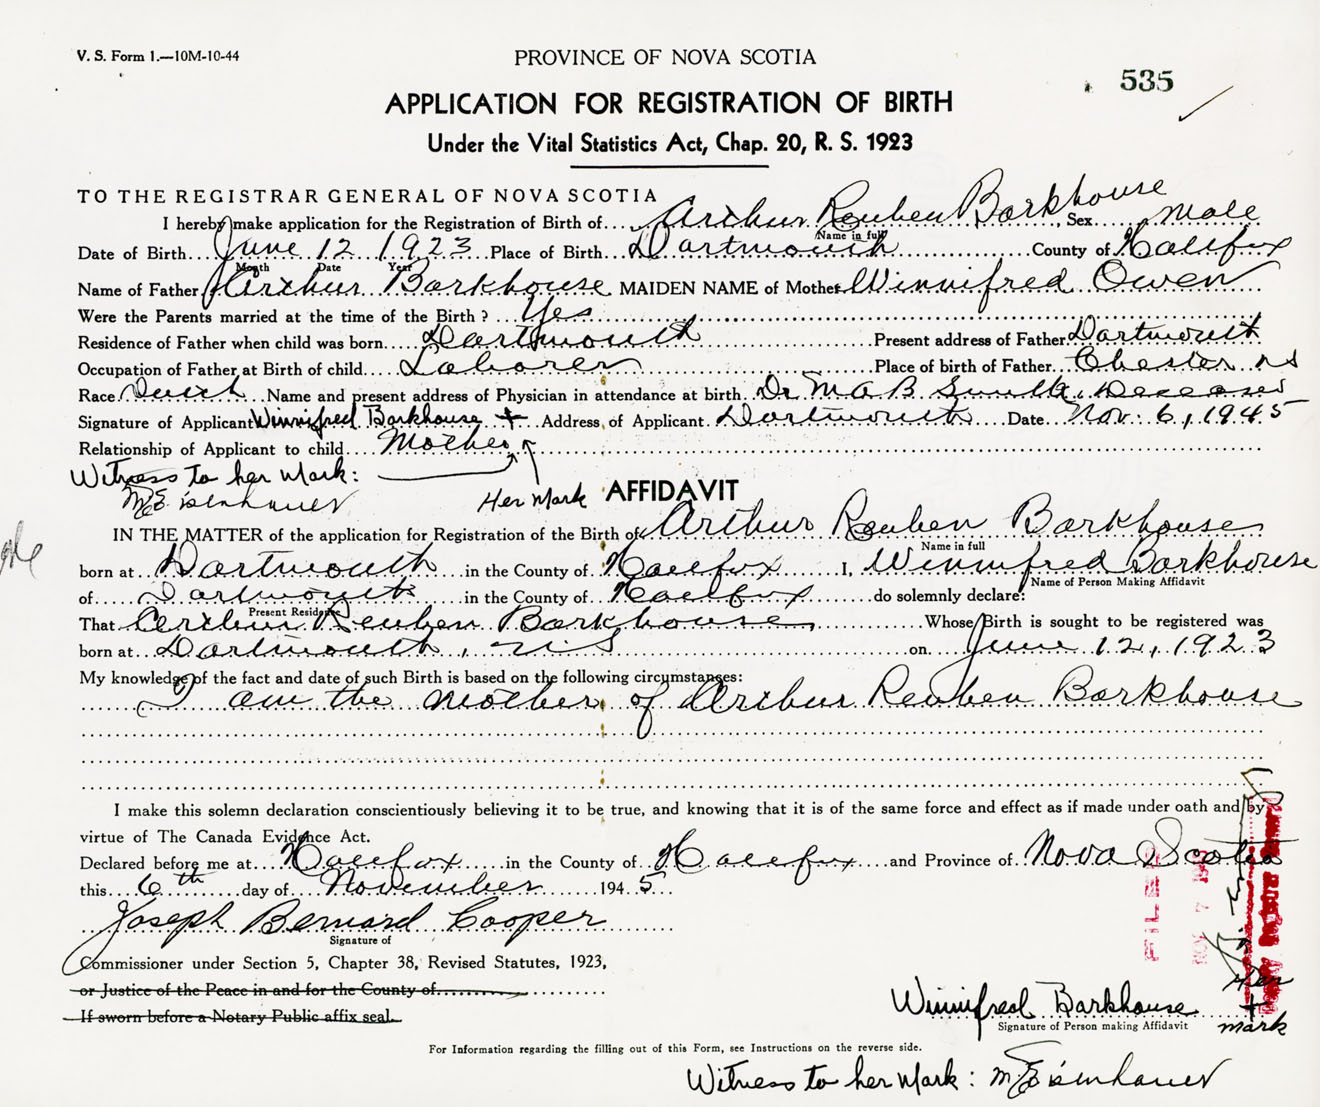 V. S. Form 1.—10M-10-44
PROVINCE OF NOVA SCOTIA
535
APPLICATION FOR REGISTRATION OF BIRTH
Under the Vital Statistics Act, Chap. 20, R. S. 1923
TO THE REGISTRAR GENERAL OF NOVA SCOTIA
I hereby make application for the Registration of Birth of Arthur Reuben Barkhouse, Sex Male
Name in full
Date of Birth June 12 1923 Place of Birth Dartmouth County of Halifax
Month Date Year
Name of Father Arthur Barkhouse MAIDEN NAME of Mother Winnifred Owen
Were the Parents married at the time of the Birth? Yes
Residence of Father when child was born Dartmouth Present address of Father Dartmouth
Occupation of Father at Birth of child Laborer Place of birth of Father Chester NS
Race Dutch Name and present address of Physician in attendance at birth Dr M A B Smith, Deceased
Signature of Applicant Winnifred Barkhouse + Address of Applicant Dartmouth Date Nov. 6, 1945
Relationship of Applicant to child Mother
Witness to her Mark:
M E Eisenhauer Her Mark
AFFIDAVIT
IN THE MATTER of the application for Registration of the Birth of Arthur Reuben Barkhouse
Name in full
born at Dartmouth in the County of Halifax I, Winnifred Barkhouse
Name of Person Making Affidavit
of Dartmouth in the County of Halifax do solemnly declare:
Present Residence
That Arthur Reuben Barkhouse, Whose Birth is sought to be registered was
born at Dartmouth, NS on June 12, 1923
My knowledge of the fact and date of such Birth is based on the following circumstances:
I am the mother of Arthur Reuben Barkhouse
I make this solemn declaration conscientiously believing it to be true, and knowing that it is of the same force and effect as if made under oath and by
virtue of The Canada Evidence Act.
Declared before me at Halifax in the County of Halifax and Province of Nova Scotia
this 6th day of November 1945
Joseph Bernard Cooper
Signature of
Commissioner under Section 5, Chapter 38, Revised Statutes, 1923,
or Justice of the Peace in and for the County of
If sworn before a Notary Public affix seal.
FILED
NOV 7
Deputy Registrar General
Winnifred Barkhouse
Her + mark
Signature of Person making Affidavit
For Information regarding the filling out of this Form, see Instructions on the reverse side.
Witness to her Mark: M E Eisenhauer